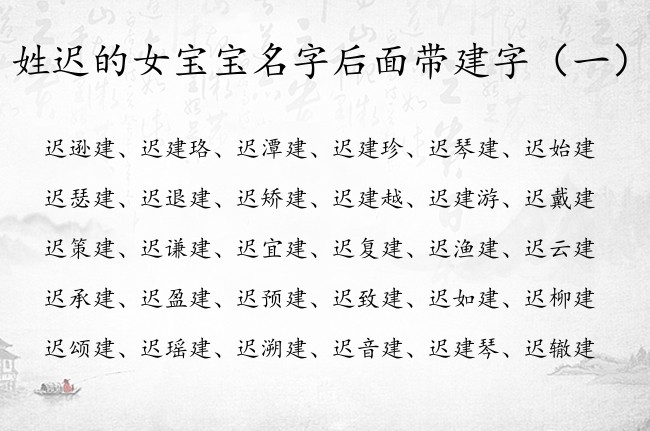 姓迟的女宝宝名字后面带建字（一）
迟逊建、迟建珞、迟潭建、迟建珍、迟琴建、迟始建
迟瑟建、迟退建、迟矫建、迟建越、迟建游、迟戴建
迟策建、迟谦建、迟宜建、迟复建、迟渔建、迟云建
迟承建、迟盈建、迟预建、迟致建、迟如建、迟柳建
迟颂建、迟瑶建、迟溯建、迟音建、迟建琴、迟辙建